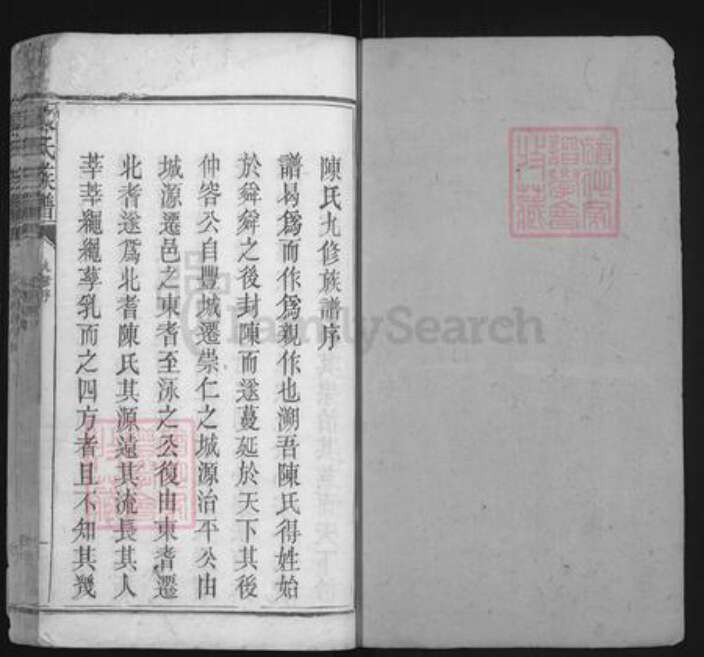 陳氏九修族譜序
譜曷爲而作爲親作也溯吾陳氏得姓始
於舜舜之後封陳而遂蔓延於天下其後
仲容公自豐城遷崇仁之城源治平公由
城源遷邑之東耆至泳之公復由東耆遷
北耆遂爲北耆陳氏其源遠其流長其人
莘莘繩繩孳乳而之四方者且不知其幾
氏族譜
FamilySearch